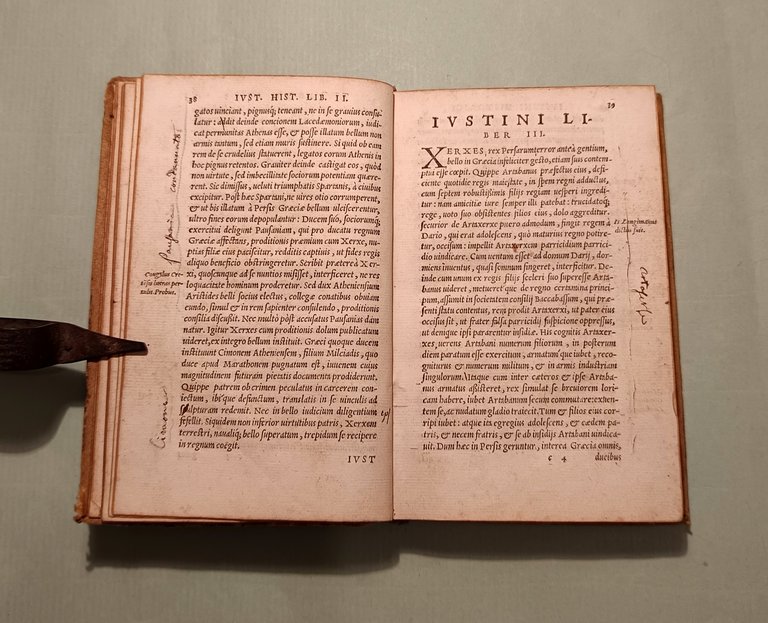 38 IVST. HIST. LIB. II.
gatos uinciant, pignusq; teneant, ne in se grauius consu-
latur: Addit deinde concionem Lacedæmoniorum, iudi-
cat permunitas Athenas esse, & posse illatum bellum non
armis tantum, sed etiam muris sustinere. Si quid ob eam
rem de se crudelius statuerent, legatos eorum Athenis in
hoc pignus retentos. Grauiter deinde castigat eos, quòd
non uirtute, sed imbecillitate sociorum potentiam quære-
rent. Sic dimissus, uelut triumphatis Spartanis, à ciuibus
excipitur. Post hæc Spartani, ne uires otio corrumperent,
& ut bis illatum à Persis Græciæ bellum ulciscerentur,
ultro fines eorum depopulantur: Ducem suo, sociorumq;
exercitui deligunt Pausaniam, qui pro ducatu regnum
Græciæ affectans, proditionis præmium cum Xerxe, nu-
ptias filiæ eius paciscitur, redditis captiuis, ut fides regis
aliquo beneficio obstringeretur. Scribit præterea Xer-
xi, quoscunque ad se nuntios misisset, interficeret, ne res
loquacitate hominum proderetur. Sed dux Atheniensium
Aristides belli socius electus, collegæ conatibus obuiam
eundo, simul & in rem sapienter consulendo, proditionis
consilia discussit. Nec multo pòst accusatus Pausanias dam
natur. Igitur Xerxes cum proditionis dolum publicatum
uideret, ex integro bellum instituit. Græci quoque ducem
instituunt Cimonem Atheniensem, filium Milciadis, quo
duce apud Marathonem pugnatum est, iuuenem cuius
magnitudinem futuram pietatis documenta prodiderunt.
Quippe patrem ob crimen peculatus in carcerem con-
iectum, ibíque defunctum, translatis in se uinculis ad
sepulturam redemit. Nec in bello iudicium diligentium
fefellit. Siquidem non inferior uirtutibus patris, Xerxem
terrestri, naualiq; bello superatum, trepidum se recipere
in regnum coëgit.
IVST
Pausaniæ condemnatus
Probus.
Cimonis
39
IVSTINI LI-
BER III.
XERXES, rex Persarum terror antè gentium,
bello in Græcia infeliciter gesto, etiam suis contem-
ptui esse cœpit. Quippe Artabanus præfectus eius, defi-
ciente quotidie regis maiestate, in spem regni adductus,
cum septem robustissimis filiis regiam uesperi ingredi-
tur: nam amicitiæ iure semper illi patebat: trucidatoq;
rege, uoto suo obsistentes filios eius, dolo aggreditur.
Securior de Artaxerxe puero admodum, fingit regem à
Dario, qui erat adolescens, quò maturius regno potire-
tur, occisum: impellit Artaxerxem parricidium parrici-
dio uindicare. Cum uentum esset ad domum Darij, dor-
miens inuentus, quasi somnum fingeret, interficitur. De-
inde cum unum ex regis filiis sceleri suo superesse Arta-
banus uideret, metueretque de regno certamina princi-
pum, assumit in societatem consilij Baccabassum, qui præ-
senti statu contentus, rem prodit Artaxerxi, ut pater eius
occisus sit, ut frater falsa parricidij suspicione oppressus,
ut denique ipsi pararentur insidiæ. His cognitis Artaxer-
xes, uerens Artabani numerum filiorum, in posterum
diem paratum esse exercitum, armatum que iubet, reco-
gniturus & numerum militum, & in armis industriam
singulorum. Itaque cum inter cæteros & ipse Arta-
banus armatus assisteret, rex simulat se breuiorem lori-
cam habere, iubet Artabanum secum commutare: exuen-
tem se, ac nudatum gladio traiecit. Tum & filios eius cor-
ripi iubet: atque ita egregius adolescens, & cædem pa-
tris, & necem fratris, & se ab insidijs Artabani uindica-
uit. Dum hæc in Persis geruntur, interea Græcia omnis,
c 4 ducibus